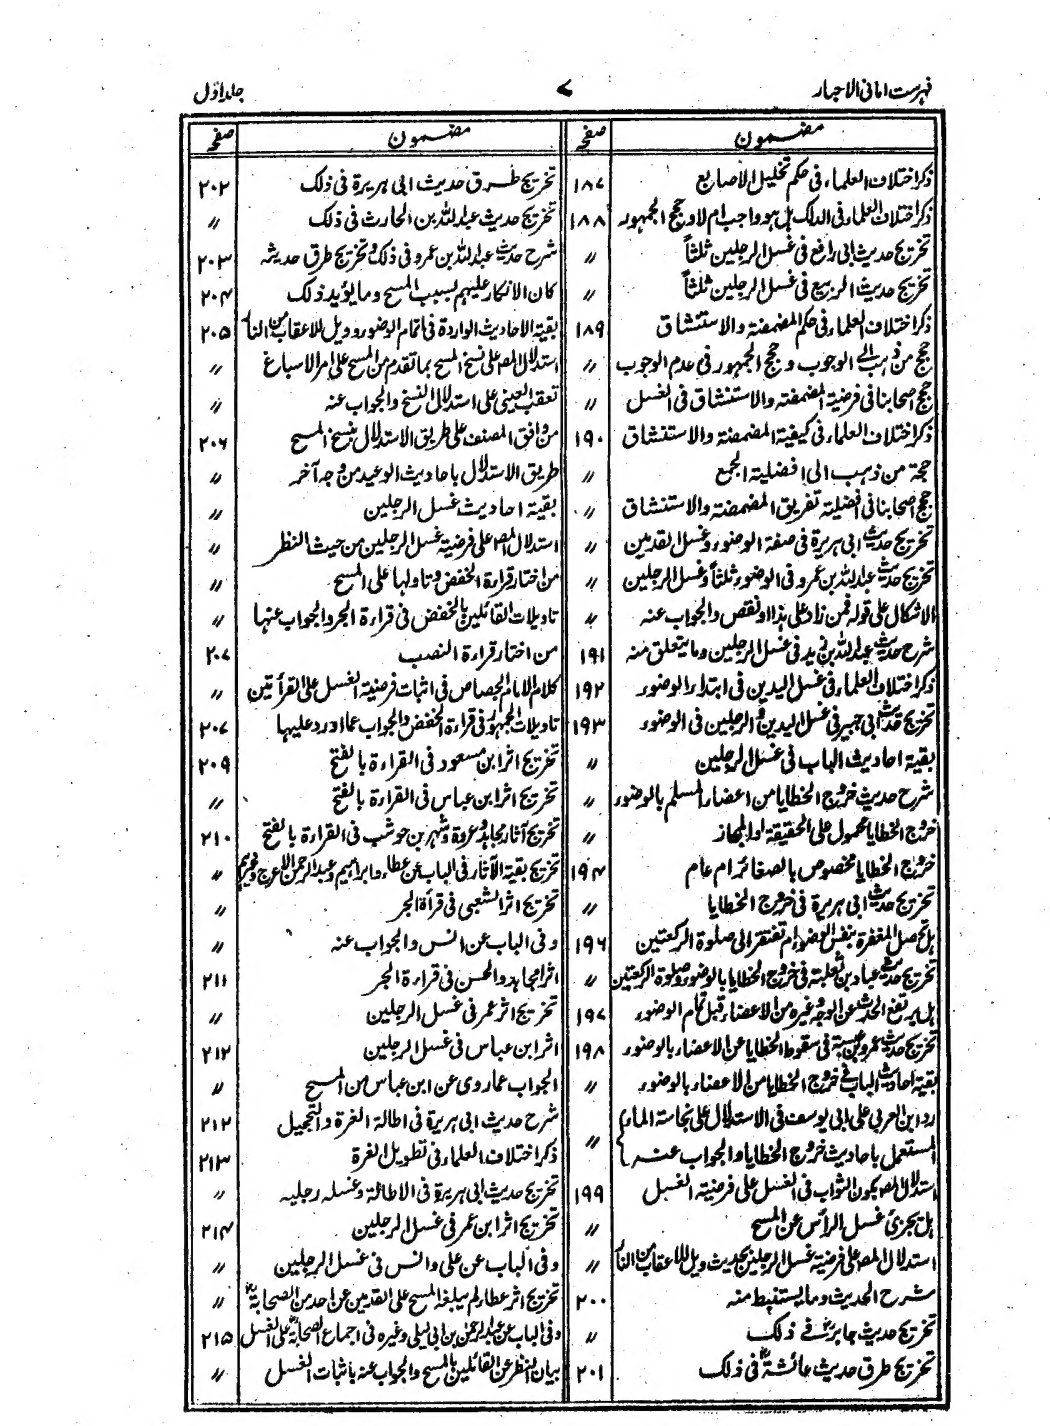 فهرست امانی الاحبار ۷ جلد اوّل
مضمون صفحہ
ذکر اختلاف العلماء فی حکم تخلیل الاصابع ۱۸۷
ذکر اختلاف العلماء فی الدلک ہل ہو واجب ام لا وحجج الجمہور ۱۸۸
تخریج حدیث ابی رافع فی غسل الرجلین ثلثاً 〃
تخریج حدیث الربیع فی غسل الرجلین ثلثاً 〃
ذکر اختلاف العلماء فی حکم المضمضة والاستنشاق ۱۸۹
حجج من ذہب الی الوجوب وحجج الجمہور فی عدم الوجوب 〃
حجج اصحابنا فی فرضیة المضمضة والاستنشاق فی الغسل 〃
ذکر اختلاف العلماء فی کیفیة المضمضة والاستنشاق ۱۹۰
حجة من ذہب الی افضلیة الجمع 〃
حجج اصحابنا فی افضلیة تفریق المضمضة والاستنشاق 〃
تخریج حدیث ابی ہریرة فی صفة الوضوء وغسل القدمین 〃
تخریج حدیث عبداللہ بن عمرو فی الوضوء ثلثاً وغسل الرجلین 〃
الاشکال علی قولہ فمن زاد علی ہذا او نقص والجواب عنہ 〃
شرح حدیث عبداللہ بن زید فی غسل الرجلین وما یتعلق منہ ۱۹۱
ذکر اختلاف العلماء فی غسل الیدین فی ابتداء الوضوء ۱۹۲
تخریج حدیث ابی جبیر فی غسل الیدین والرجلین فی الوضوء ۱۹۳
بقیة احادیث الباب فی غسل الرجلین 〃
شرح حدیث خروج الخطایا من اعضاء المسلم بالوضوء 〃
خروج الخطایا محمول علی الحقیقة او المجاز 〃
خروج الخطایا مخصوص بالصغائر ام عام ۱۹۴
تخریج حدیث ابی ہریرة فی خروج الخطایا 〃
ہل تحصل المغفرة بنفس الوضوء ام تفتقر الی صلوة الرکعتین ۱۹۶
تخریج حدیث عباد بن ثعلبة فی خروج الخطایا بالوضوء وصلوة الرکعتین 〃
ہل یرتفع الحدث عن الوجہ وغیرہ من الاعضاء قبل تمام الوضوء ۱۹۷
تخریج حدیث عمرو بن عبسة فی سقوط الخطایا عن الاعضاء بالوضوء ۱۹۸
بقیة احادیث الباب فی خروج الخطایا من الاعضاء بالوضوء 〃
رد ابن العربی علی ابی یوسف فی الاستدلال علی نجاسة الماء
المستعمل باحادیث خروج الخطایا والجواب عنہ 〃
استدلال المص بکون الثواب فی الغسل علی فرضیة الغسل ۱۹۹
ہل یجزئ غسل الرأس عن المسح 〃
استدلال المص علی فرضیة غسل الرجلین بحدیث ویل للاعقاب من النار 〃
شرح الحدیث وما یستنبط منہ ۲۰۰
تخریج حدیث جابرؓ فی ذلک 〃
تخریج طرق حدیث عائشةؓ فی ذلک ۲۰۱
مضمون صفحہ
تخریج طرق حدیث ابی ہریرة فی ذلک ۲۰۲
تخریج حدیث عبداللہ بن الحارث فی ذلک 〃
شرح حدیث عبداللہ بن عمرو فی ذلک وتخریج طرق حدیثہ ۲۰۳
کان الانکار علیہم بسبب المسح وما یؤید ذلک ۲۰۴
بقیة الاحادیث الواردة فی اتمام الوضوء وویل للاعقاب من النار ۲۰۵
استدلال المص علی نسخ المسح بما تقدم من المسح علی امر الاسباغ 〃
تعقب العینی علی استدلال النسخ والجواب عنہ 〃
من وافق المصنف علی طریق الاستدلال بنسخ المسح ۲۰۶
طریق الاستدلال باحادیث الوعید من وجہ آخر 〃
بقیة احادیث غسل الرجلین 〃
استدلال المص علی فرضیة غسل الرجلین من حیث النظر 〃
من اختار قراءة الخفض وتاولہا علی المسح 〃
تاویلات القائلین بالخفض فی قراءة الجر والجواب عنہا 〃
من اختار قراءة النصب ۲۰۷
کلام الامام الجصاص فی اثبات فرضیة الغسل علی القرأتین 〃
تاویلات الجمہور فی قراءة الخفض والجواب عما اورد علیہا ۲۰۷
تخریج اثر ابن مسعود فی القراءة بالفتح ۲۰۹
تخریج اثر ابن عباس فی القراءة بالفتح 〃
تخریج آثار مجاہد وعروة وشہر بن حوشب فی القراءة بالفتح ۲۱۰
تخریج بقیة الآثار فی الباب عن عطاء وابراہیم وعبدالرحمن الاعرج وغیرہم 〃
تخریج اثر الشعبی فی قرأة الجر 〃
وفی الباب عن انس والجواب عنہ 〃
اثر مجاہد والحسن فی قراءة الجر ۲۱۱
تخریج اثر عمر فی غسل الرجلین 〃
اثر ابن عباس فی غسل الرجلین ۲۱۲
الجواب عما روی عن ابن عباس من المسح 〃
شرح حدیث ابی ہریرة فی اطالة الغرة والتحجیل ۲۱۲
ذکر اختلاف العلماء فی تطویل الغرة ۲۱۳
تخریج حدیث ابی ہریرة فی الاطالة وغسلہ رجلیہ 〃
تخریج اثر ابن عمر فی غسل الرجلین ۲۱۴
وفی الباب عن علی وانس فی غسل الرجلین 〃
تخریج اثر عطاء لم یبلغہ المسح علی القدمین عن احد من الصحابةؓ 〃
وفی الباب عن عبدالرحمن بن ابی لیلی وغیرہ فی اجماع الصحابة علی الغسل ۲۱۵
بیان النظر عن القائلین بالمسح والجواب عنہ باثبات الغسل 〃